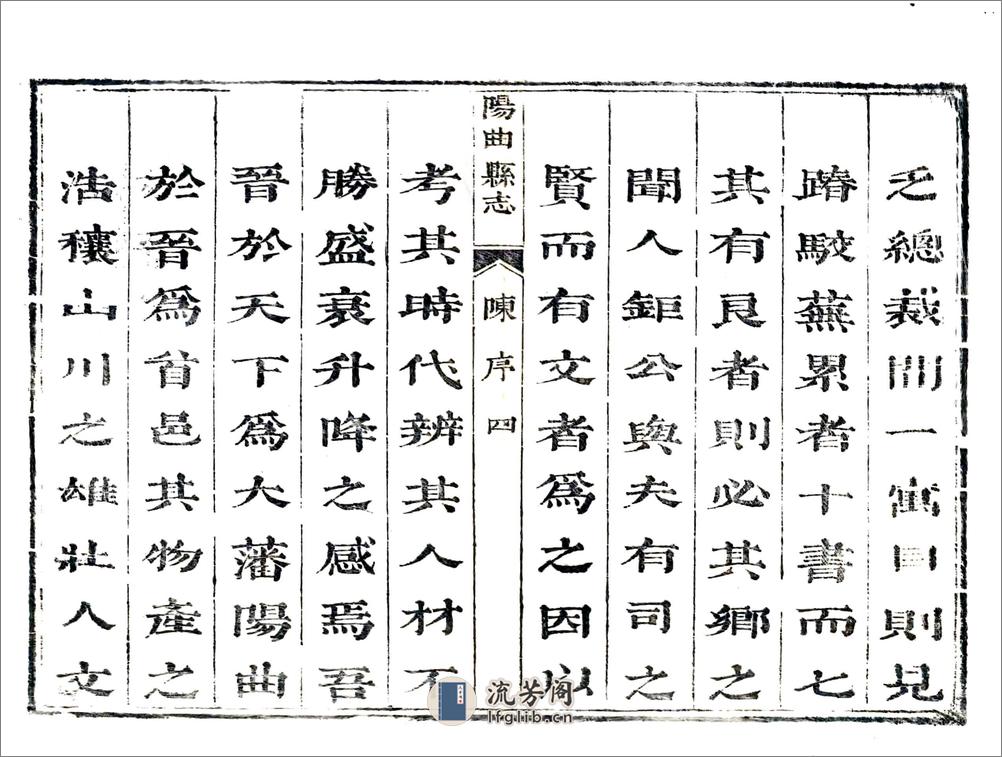 乏總裁間一寓目則見
踳駁蕪累者十書而七
其有良者則必其鄉之
聞人鉅公與夫有司之
賢而有文者爲之因以
陽曲縣志 陳序 四
考其時代辨其人材不
勝盛衰升降之感焉吾
晉於天下爲大藩陽曲
於晉爲首邑其物產之
浩穰山川之雄壯人文
流芳阁
lfglib.cn